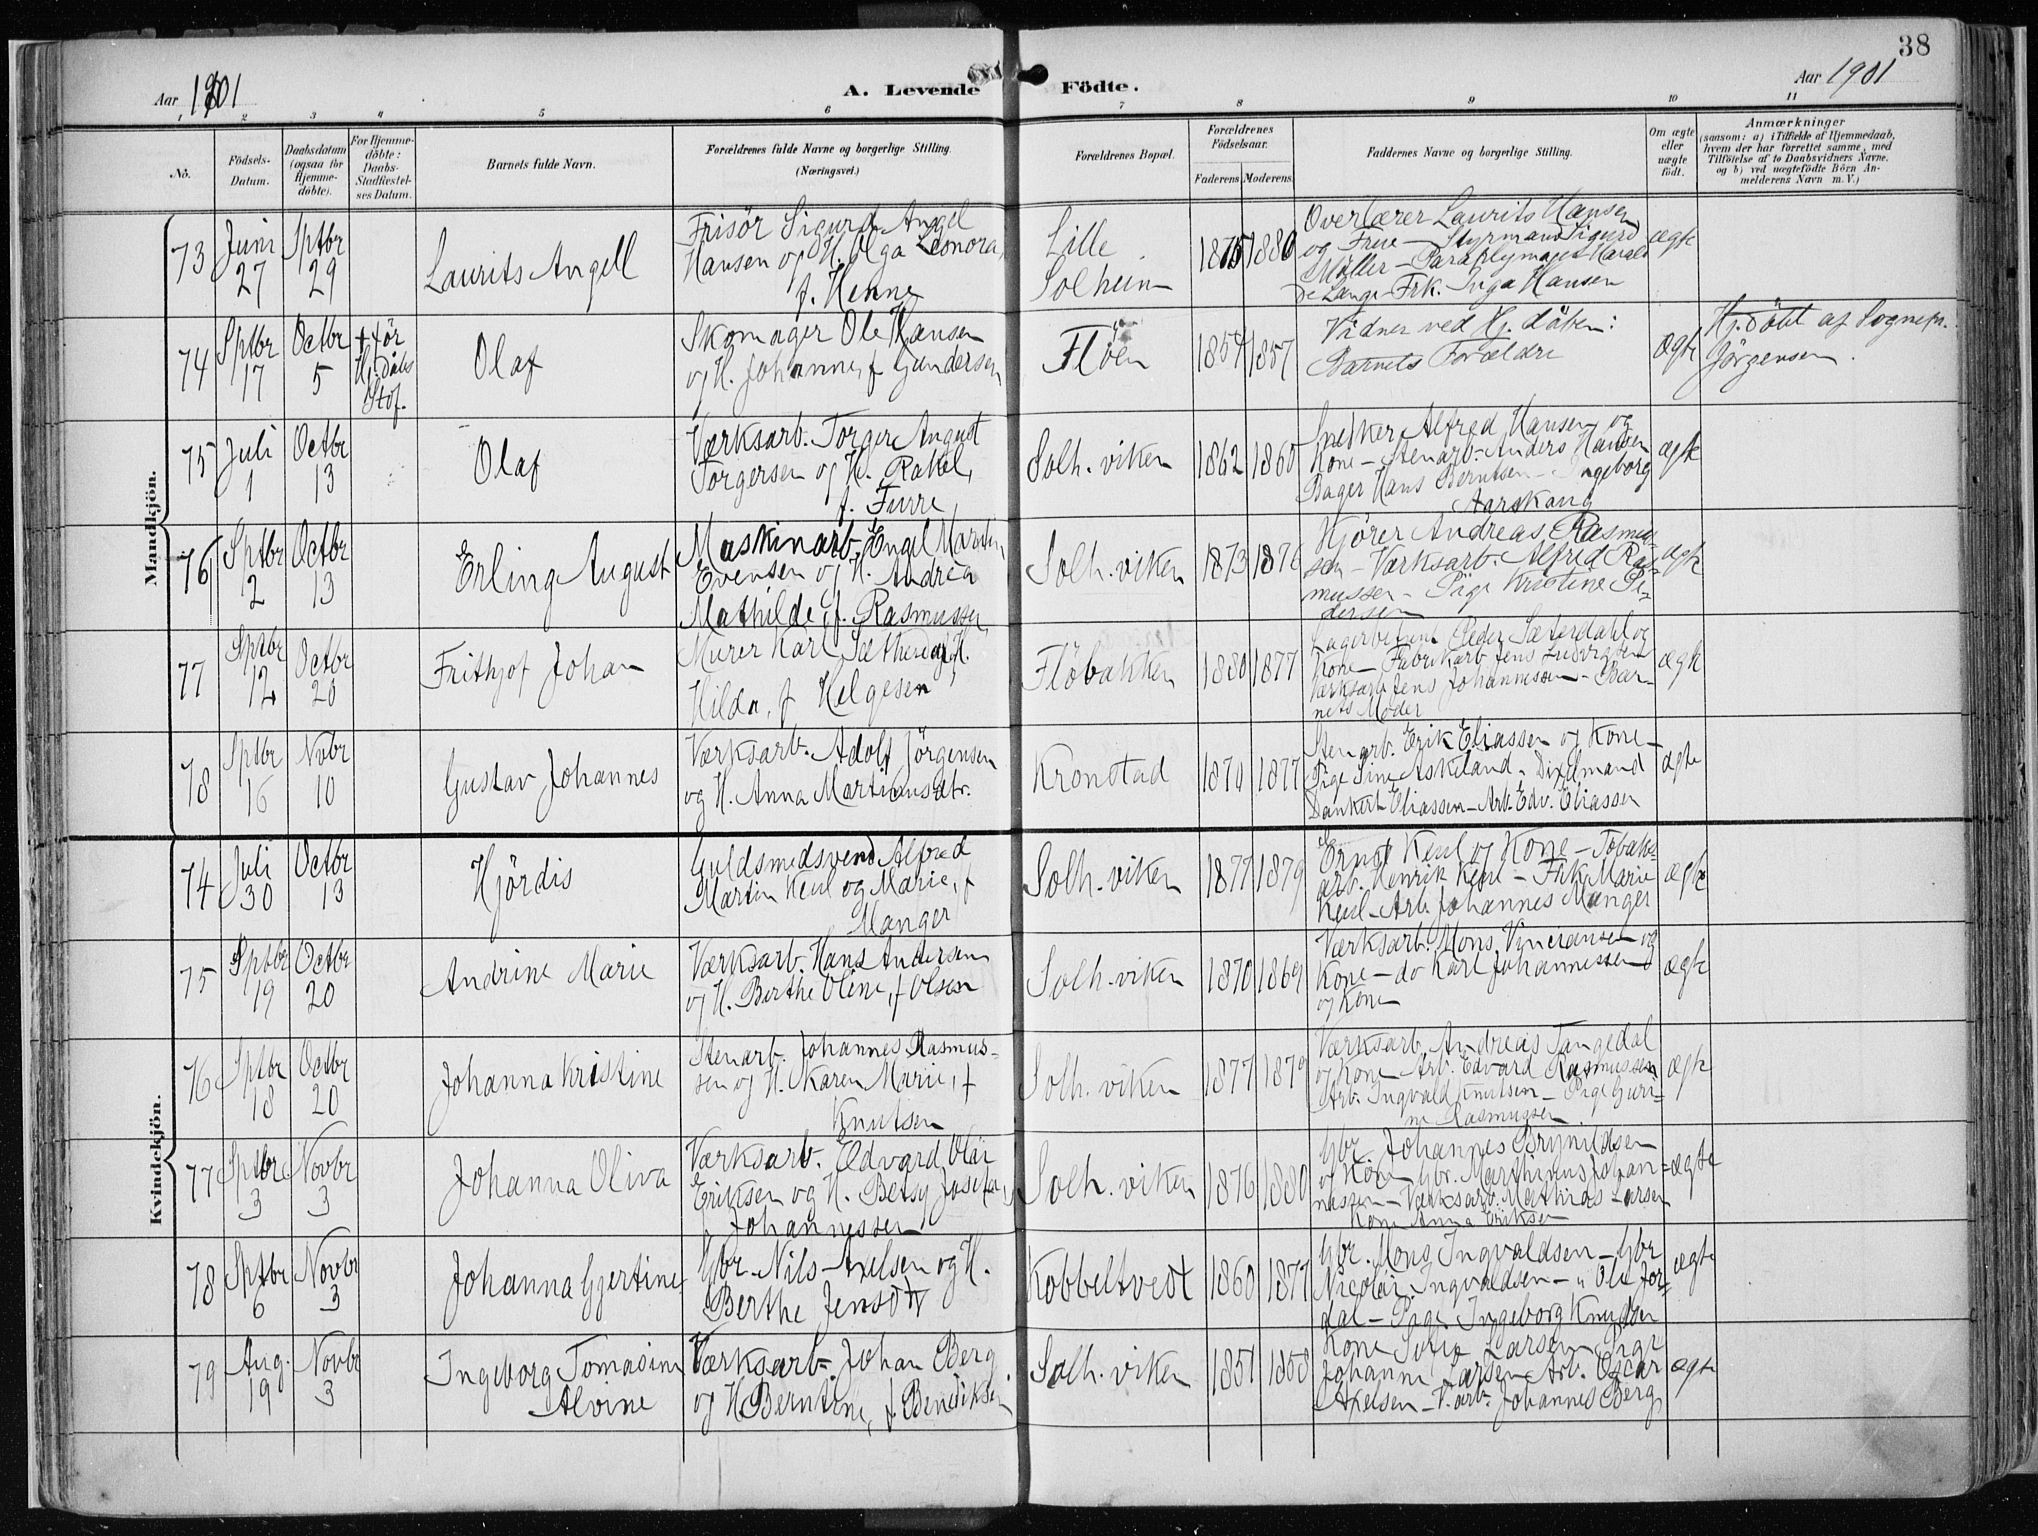 38
Aar 1901
A. Levende Födte.
Aar 1901
1 2 3 4 5 6 7 8 9 10 11
No.
Födsels-
Datum.
Daabsdatum
(ogsaa for
Hjemme-
döbte).
For Hjemme-
döbte:
Daabs-
Stadfæstel-
ses Datum.
Barnets fulde Navn.
Forældrenes fulde Navne og borgerlige Stilling.
(Næringsvei.)
Forældrenes Bopæl.
Forældrenes
Födselsaar.
Faderens. Moderens.
Faddernes Navne og borgerlige Stilling.
Om ægte
eller
uægte
födt.
Anmærkninger
(saasom: a) i Tilfælde af Hjemmedaab,
hvem der har forrettet samme, med
Tilföielse af to Daabsvidners Navne,
og b) ved uægtefödte Börn An-
melderens Navn m. V.)
Mandkjön.
73
Juni
27
Sptbr
29
Laurits Angell
Frisör Sigurd Angel
Hansen og H. Olga Leonora,
f. Henne
Lille
Solheim
1875 1880
Overlærer Laurits Hansen
og Frue – Styrmand Sigurd
Möller – Paraplymager Harald
de Lange – Frk. Inga Hansen
ægte
74
Sptbr
17
Octbr
5
+ för
Hj. Daabs
Stdf.
Olaf
Skomager Ole Hansen
og H. Johanne, f Gundersen
Flöen
1854 1857
Vidner ved Hj. dåben:
Barnets Forældre
ægte
Hj. döbt af Sognepr.
Jörgensen.
75
Juli
1
Octbr
13
Olaf
Værksarb. Torger August
Torgersen og H. Rakel,
f. Furre
Solh. viken
1862 1860
Snekker Alfred Hansen og
Kone – Stenarb. Anders Hansen
Bager Hans Berntsen – Ingeborg
Aarskaug
ægte
76
Sptbr
2
Octbr
13
Erling August
Maskinarb. Engel Martin
Evensen og H. Andrea
Mathilde, f. Rasmussen
Solh. viken
1873 1876
Kjörer Andreas Rasmus-
sen – Værksarb. Alfred Ras-
mussen – Pige Kristine Pe-
dersen
ægte
77
Sptbr
12
Octbr
20
Frithjof Johan
Murer Karl Sæthere og H.
Hilda, f Helgesen
Flöbakken
1880 1877
Lagerbetjent Peder Sæterdahl og
Kone – Fabrikarb. Jens Ludvigsen
Værksarb. Jens Johannessen – Bar-
nets Moder
ægte
78
Sptbr
16
Novbr
10
Gustav Johannes
Værksarb. Adolf Jörgensen
og H. Anna Martinusdtr.
Kronstad
1870 1877
Stenarb. Erik Eliassen og Kone –
Pige Sine Askeland – Dixelmand
Dankert Eliassen – Arb. Edv. Eliassen
ægte
Kvindekjön.
74
Juli
30
Octbr
13
Hjördis
Guldsmedsvend Alfred
Martin Keul og Marie, f
Manger
Solh. viken
1877 1879
Ernst Keul og Kone – Tobaks-
arb. Henrik Keul – Frk. Marie
Keul – Arb. Johannes Manger
ægte
75
Sptbr
19
Octbr
20
Andrine Marie
Værksarb. Hans Andersen
og H. Berthe Oline, f Olsen
Solh. viken
1870 1869
Værksarb. Mons Vincransen og
Kone – do Karl Johannessen
og Kone
ægte
76
Sptbr
18
Octbr
20
Johanna Kristine
Stenarb. Johannes Rasmus-
sen og H. Karen Marie, f
Knutsen
Solh. viken
1877 1879
Værksarb. Andreas Tangedal
og Kone – Arb. Edvard Rasmussen
Arb. Ingvald Knutsen – Pige Guri-
ne Rasmussen
ægte
77
Sptbr
3
Novbr
3
Johanna Oliva
Værksarb. Edvard Olai
Eriksen og H. Betsy Josefa,
Johannessen
Solh. viken
1876 1880
Gbr. Johannes Brynildsen
og Kone – Gbr. Marthinus Johan-
nessen – Værksarb. Mathias Larsen
Kone Anna Eriksen
ægte
78
Sptbr
6
Novbr
3
Johanna Gjertine
Gbr. Nils Axelsen og H.
Berthe Jensdtr
Kobbeltvedt
1860 1877
Gbr. Mons Ingvaldsen – Gbr
Nicolai Ingvaldsen – " Ole Jor-
dal – Pige Ingeborg Knudsen
ægte
79
Aug.
19
Novbr
3
Ingeborg Tomasine
Alvine
Værksarb. Johan Berg
og H Berntine, f. Bendiksen
Solh. viken
1851 1858
Kone Sofie Larsen Pige
Johanne Larsen Arb. Oscar
Axelsen – V. arb. Johannes Berg
ægte